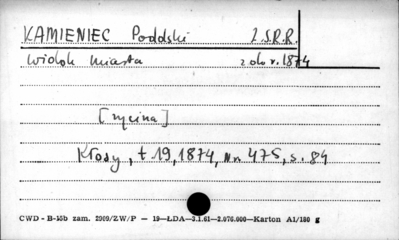 KAMIENIEC Podolski Z.S.R.R.
Widok miasta z ok. r. 1874
[rycina]
Kłosy, t 19, 1874, nr 475, s. 84
CWD - B-15b zam. 2909/ZW/P — 19—ŁDA—3.1.61—2.076.000—Karton A1/180 g